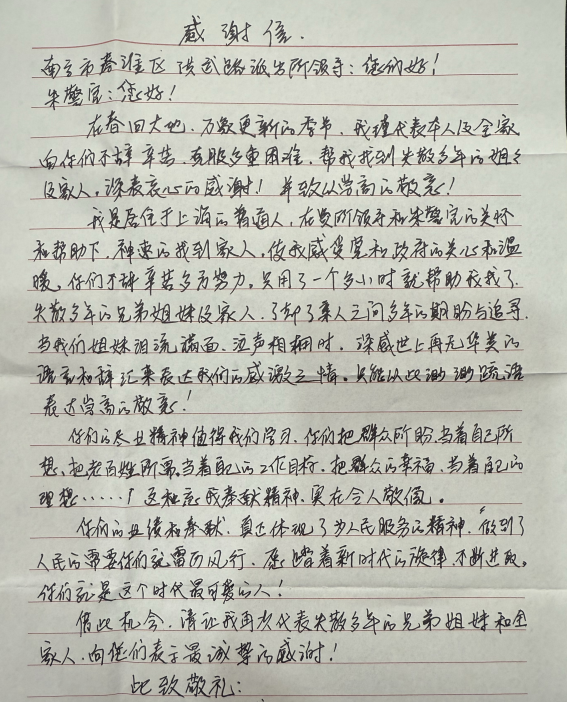 感谢信.
南京市秦淮区 洪武路派出所领导：您们好！
朱警官：您好！
在春回大地，万象更新的季节，我谨代表本人及全家
向你们不辞辛苦，克服多重困难，帮我找到失散多年的姐姐
及家人，深表衷心的感谢！并致以崇高的敬意！
我是居住于上海的普通人，在贵所领导和朱警官的关怀
和帮助下，神速的找到家人，使我感受党和政府的关心和温
暖。你们不辞辛苦多方努力。只用了一个多小时就帮助我找了
失散多年的兄弟姐妹及家人，了却了亲人之间多年的期盼与追寻.
当我们姐妹泪流满面，泣声相拥时，深感世上再无华美的
语言和辞汇来表达我们的感激之情。只能以此
表达崇高的敬意！
你们的敬业精神值得我们学习，你们把群众所盼，当着自己所
想，把老百姓所需，当着自己的工作目标，把群众的幸福，当着自己的
理想……！这种忘我奉献精神，实在令人敬佩。
你们的业绩和奉献，真正体现了为人民服务的精神，做到了
人民的需要你们就雷厉风行，踏着新时代的旋律，不断进取。
你们就是这个时代最可爱的人！
借此机会，请让我再次代表失散多年的兄弟姐妹和全
家人，向您们表示最诚挚的感谢！
此致敬礼：